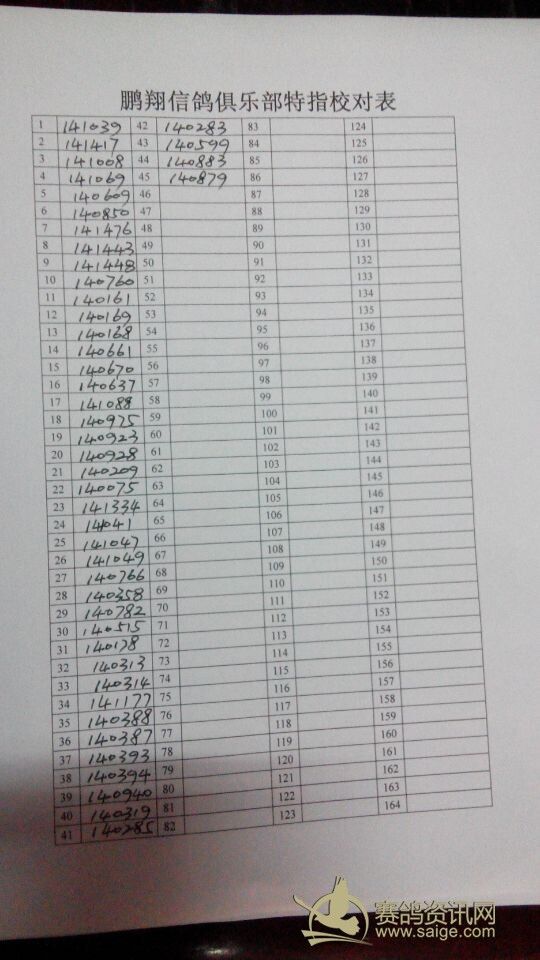 鹏翔信鸽俱乐部特指校对表
1 141039 42 140283 83 124
2 141417 43 140599 84 125
3 141008 44 140883 85 126
4 141069 45 140879 86 127
5 140609 46 87 128
6 140850 47 88 129
7 141476 48 89 130
8 141443 49 90 131
9 141448 50 91 132
10 140760 51 92 133
11 140161 52 93 134
12 140169 53 94 135
13 140168 54 95 136
14 140661 55 96 137
15 140670 56 97 138
16 140637 57 98 139
17 141088 58 99 140
18 140975 59 100 141
19 140923 60 101 142
20 140928 61 102 143
21 140209 62 103 144
22 140075 63 104 145
23 141334 64 105 146
24 14041 65 106 147
25 141047 66 107 148
26 141049 67 108 149
27 140766 68 109 150
28 140358 69 110 151
29 140782 70 111 152
30 140515 71 112 153
31 140178 72 113 154
32 140313 73 114 155
33 140314 74 115 156
34 141177 75 116 157
35 140388 76 117 158
36 140387 77 118 159
37 140393 78 119 160
38 140394 79 120 161
39 140940 80 121 162
40 140319 81 122 163
41 140285 82 123 164
赛鸽资讯网
www.saige.com